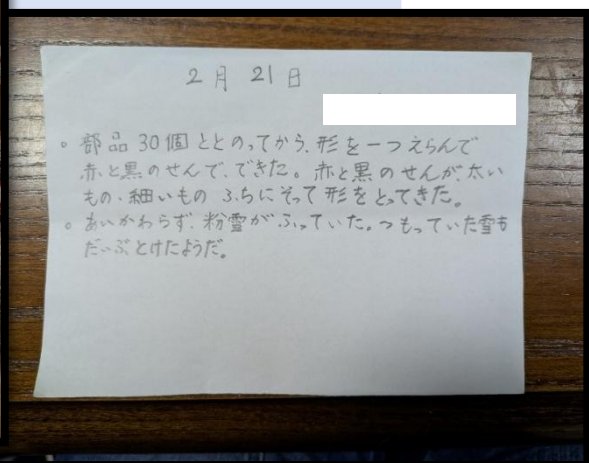 2月21日
。部品30個ととのってから、形を一つえらんで
赤と黒のせんで、できた。赤と黒のせんが、太い
もの・細いもの ふちにそって形をとってきた。
。あいかわらず、粉雪がふっていた。つもっていた雪も
だいぶとけたようだ。